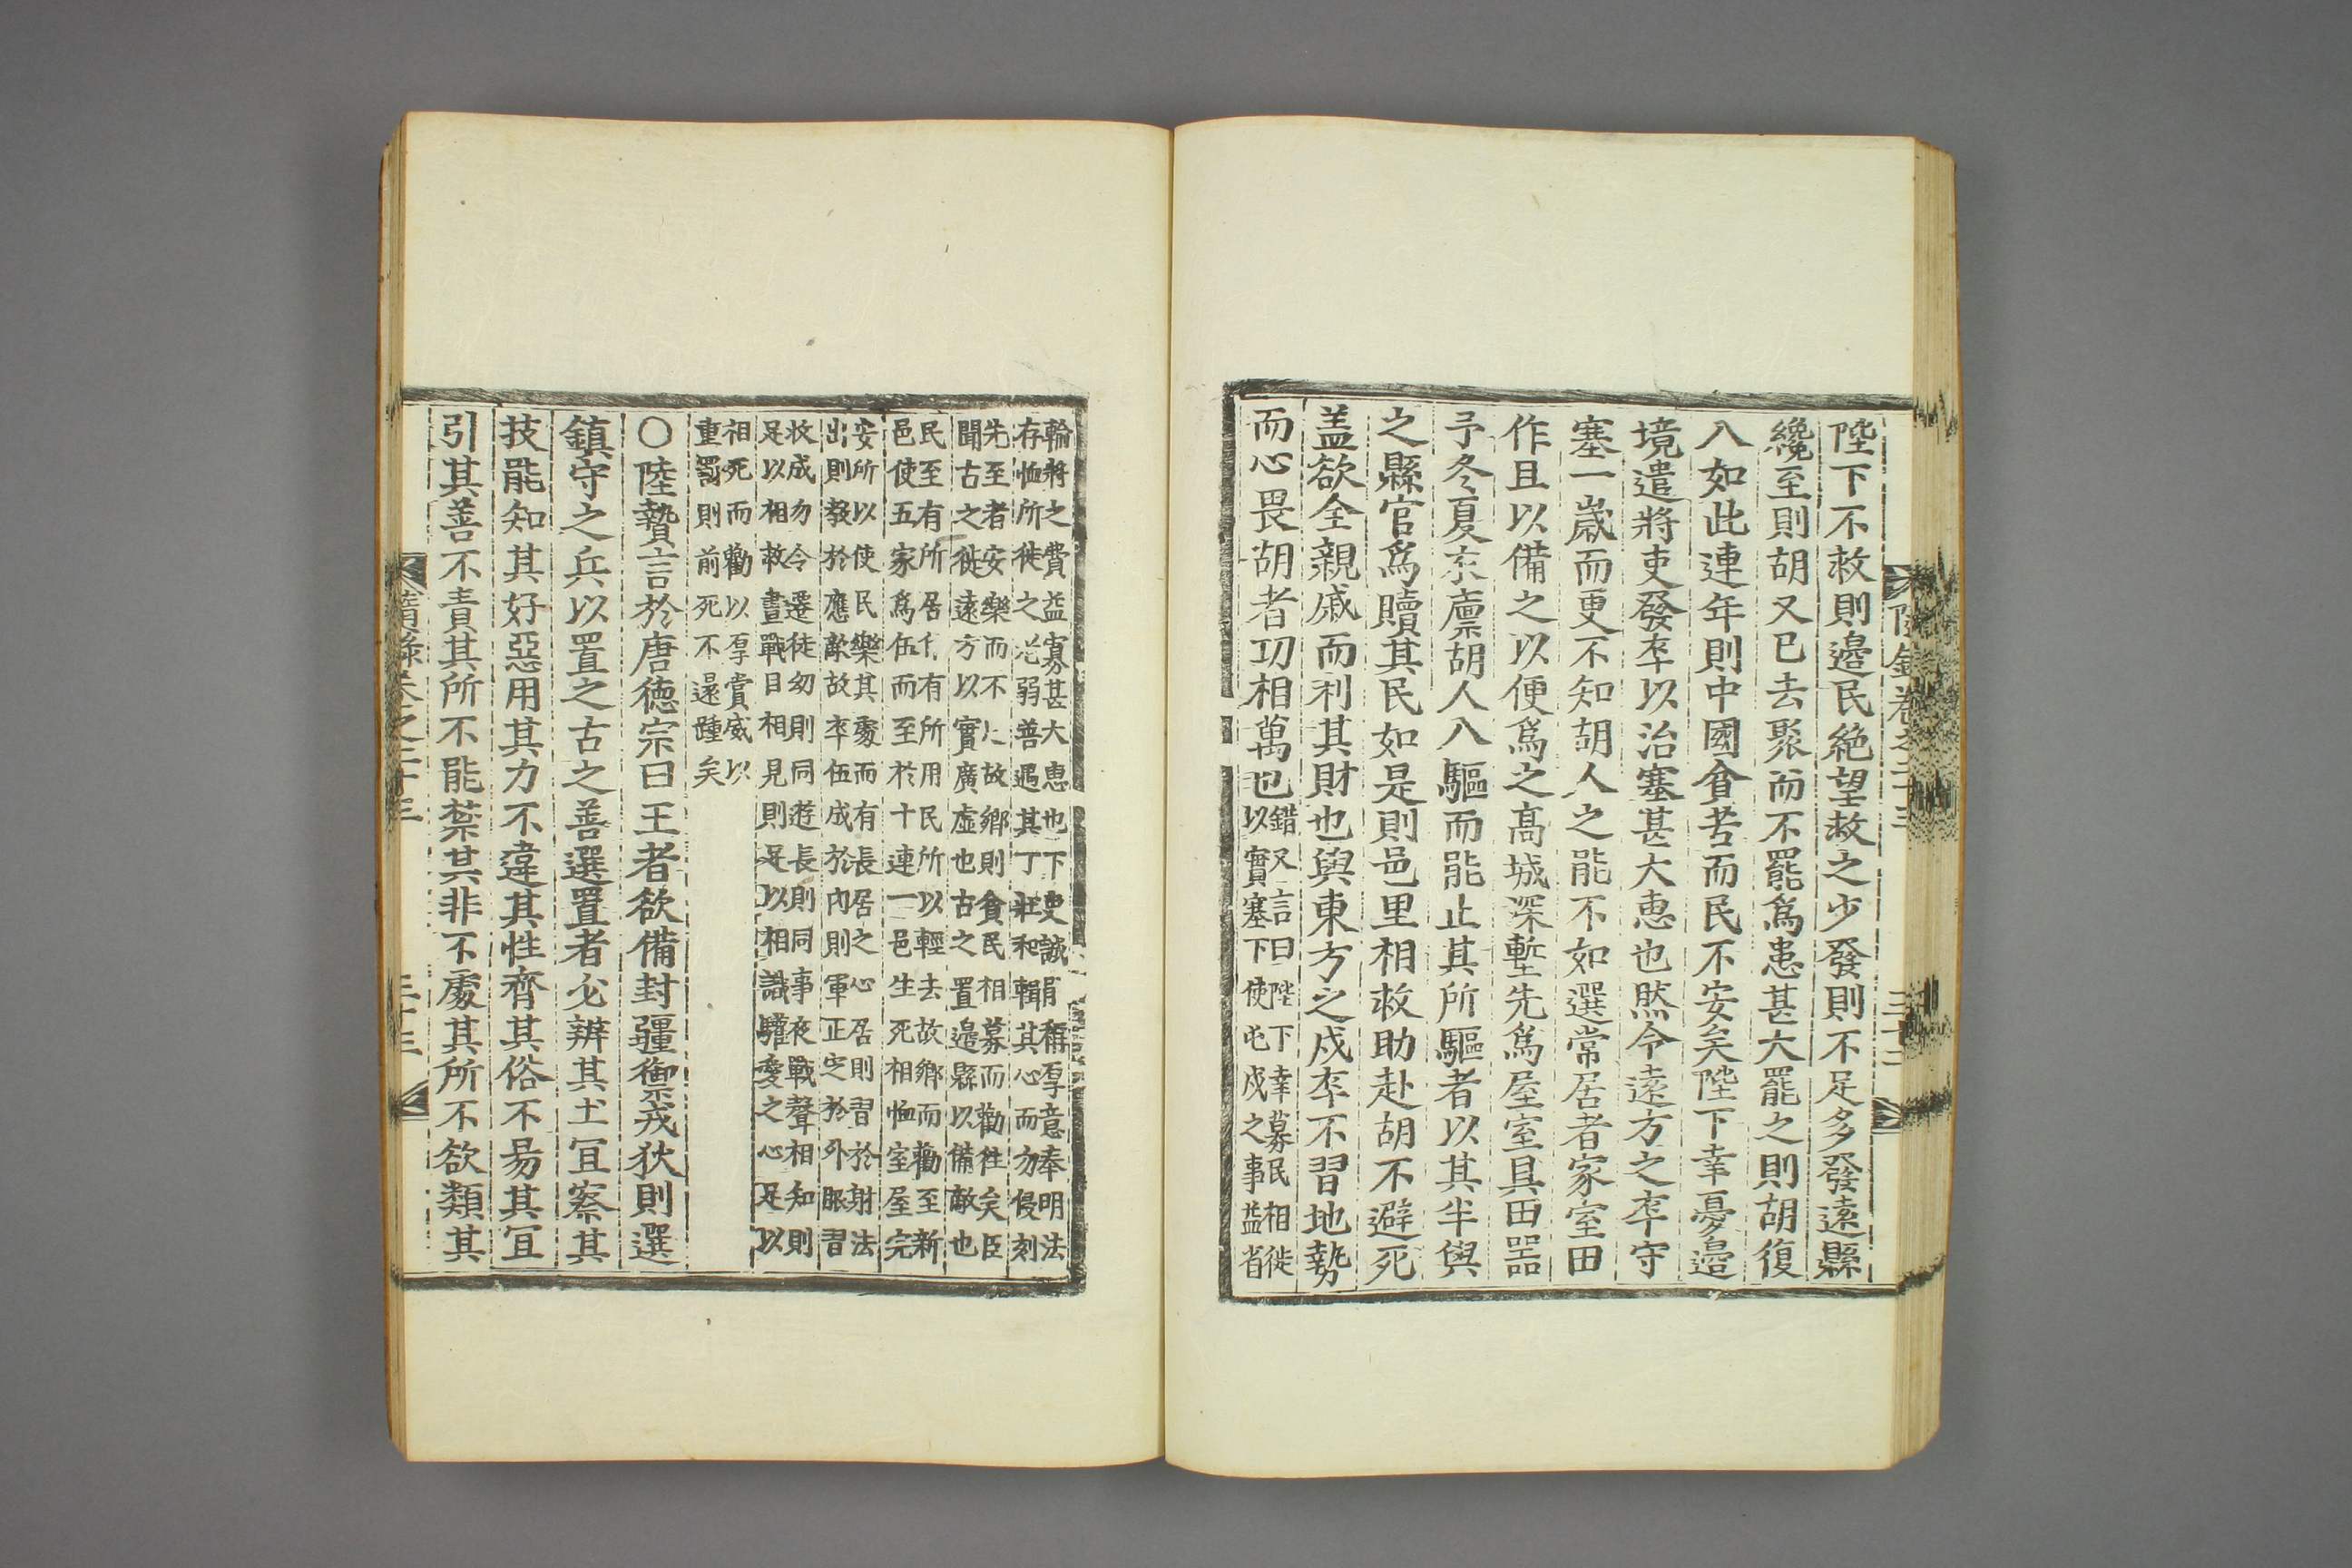 陛下不救則邉民絶望救之少發則不足多發遠縣
纔至則胡又已去聚而不罷爲患甚大罷之則胡復
入如此連年則中國貪苦而民不安矣陛下幸憂邉
境遣將吏發卒以治塞甚大恵也然令逺方之卒守
塞一嵗而更不知胡人之能不如選常居者家室田
作且以備之以便爲之高城深塹先爲屋室具田噐
予冬夏衣廪胡人入驅而能止其所驅者以其半與
之縣官爲贖其民如是則邑里相救助赴胡不避死
盖欲全親戚而利其財也與東方之戍卒不習地勢
而心畏胡者功相萬也
錯又言曰陛下幸募民相徙
以實塞下使屯戍之事益省
輸將之費益寡甚大恵也下吏誠能稱厚意奉明法
存恤所徙之老弱善遇其丁壯和輯其心而勿侵刻
先至者安樂而不故鄉則貪民相募而勸徃矣臣
聞古之徙遠方以實廣虛也古之置邉縣以備敵也
民至有所居有所用民所以輕去故鄉而勸至新
邑使五家爲伍而至於十連一邑生死相恤室屋完
安所以使民樂其處而有長居之心居則習於射法
出則敎於應敵故卒伍成於內則軍正㝎於外服習
以成勿令遷徙幼則同遊長則同事夜戰聲相知則
足以相救晝戰目相見則足以相識驩愛之心足以
相死而勸以厚賞威以
重罰則前死不還踵矣
〇陸贄言於唐徳宗曰王者欲備封疆禦戎狄則選
鎮守之兵以置之古之善選置者必辨其土冝察其
技能知其好惡用其力不違其性齊其俗不易其冝
引其善不責其所不能禁其非不處其所不欲類其
卷之二十三
三十三